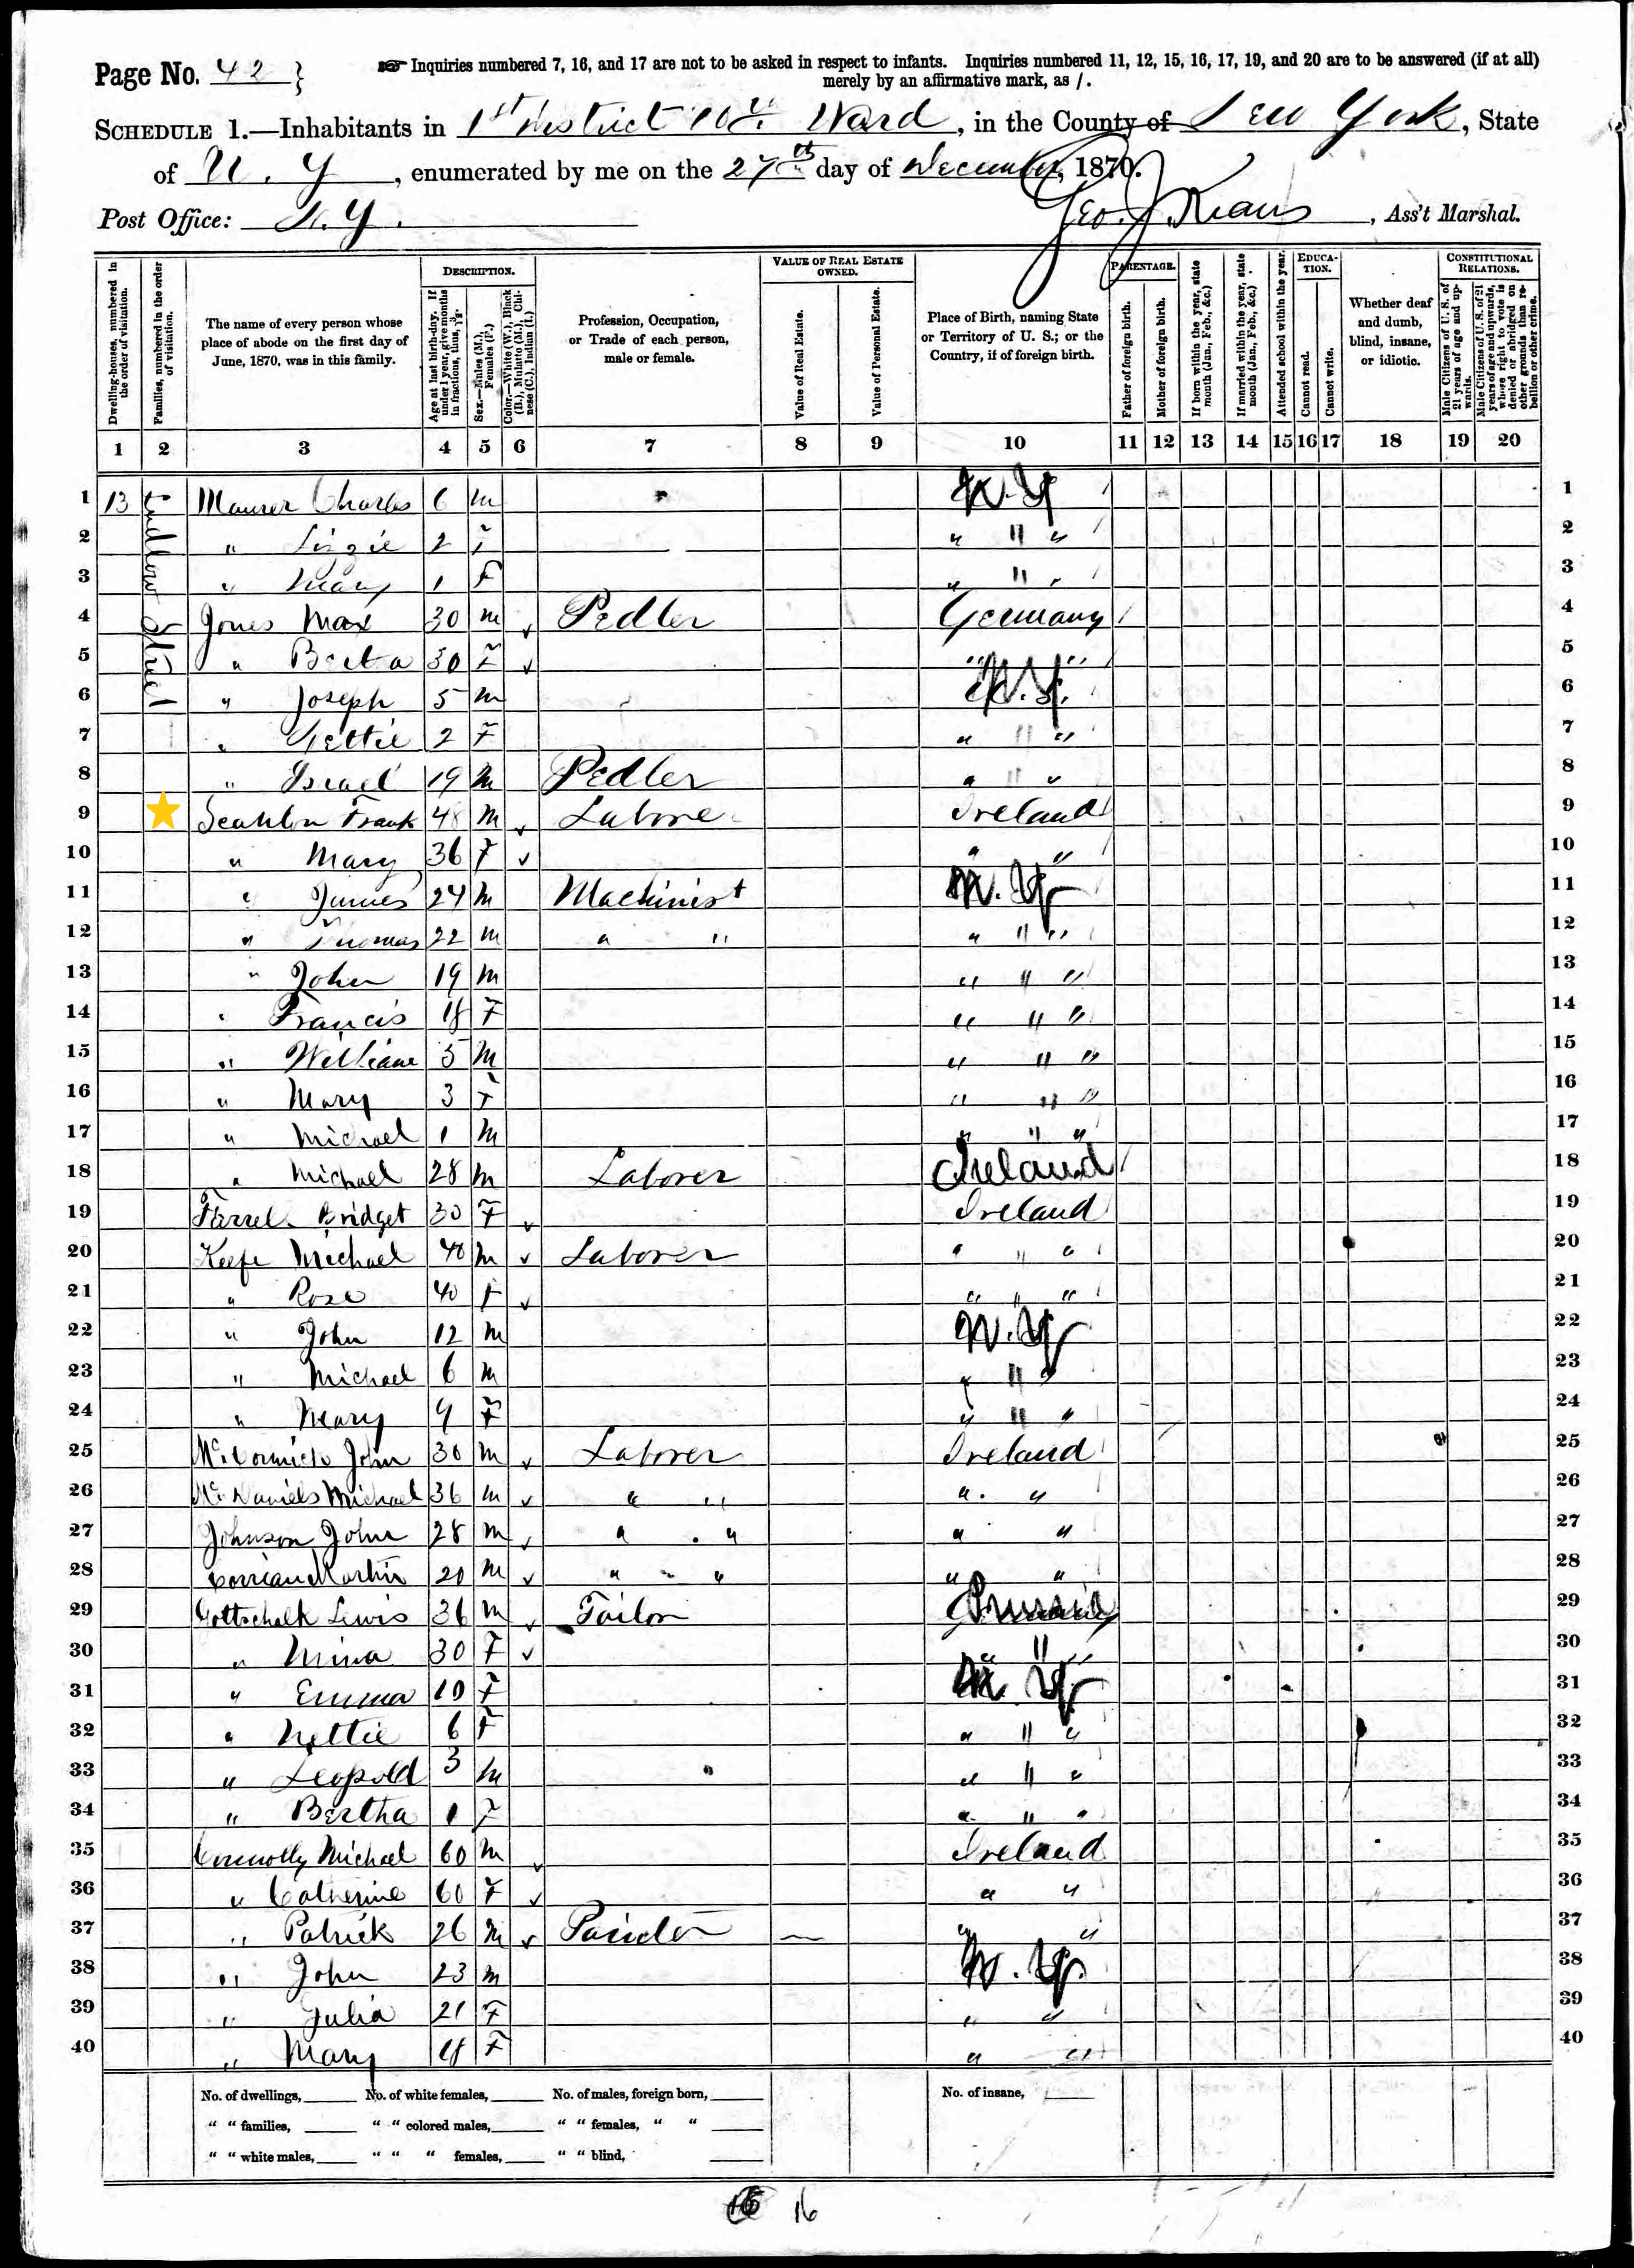 Page No. 42 }
☞ Inquiries numbered 7, 16, and 17 are not to be asked in respect to infants. Inquiries numbered 11, 12, 15, 16, 17, 19, and 20 are to be answered (if at all)
merely by an affirmative mark, as /.
SCHEDULE 1.—Inhabitants in 1st District 10th Ward, in the County of New York, State
of N. Y, enumerated by me on the 27th day of December, 1870.
Post Office: N. Y. Geo. J. , Ass't Marshal.
Dwelling-houses, numbered in the order of visitation.
Families, numbered in the order of visitation.
The name of every person whose place of abode on the first day of June, 1870, was in this family.
DESCRIPTION.
Age at last birth-day. If under 1 year, give months in fractions, thus, 3/12.
Sex.—Males (M.), Females (F.)
Color.—White (W.), Black (B.), Mulatto (M.), Chinese (C.), Indian (I.)
Profession, Occupation, or Trade of each person, male or female.
VALUE OF REAL ESTATE OWNED.
Value of Real Estate.
Value of Personal Estate.
Place of Birth, naming State or Territory of U. S.; or the Country, if of foreign birth.
PARENTAGE.
Father of foreign birth.
Mother of foreign birth.
If born within the year, state month (Jan., Feb., &c.)
If married within the year, state month (Jan., Feb., &c.)
Attended school within the year.
EDUCATION.
Cannot read.
Cannot write.
Whether deaf and dumb, blind, insane, or idiotic.
CONSTITUTIONAL RELATIONS.
Male Citizens of U. S. of 21 years of age and upwards.
Male Citizens of U. S. of 21 years of age and upwards, whose right to vote is denied or abridged on other grounds than rebellion or other crime.
1 2 3 4 5 6 7 8 9 10 11 12 13 14 15 16 17 18 19 20
Ludlow Street
1 13 Maurer Charles 6 M N. Y / 1
2 " Lizzie 2 F " " " / 2
3 " Mary 1 F " " " / 3
4 Jones Max 30 M ✓ Pedler Germany / 4
5 " Berta 30 F ✓ " " / 5
6 " Joseph 5 M N. Y. / 6
7 " Nettie 2 F " " " 7
8 " Israel 19 M Pedler " " " 8
9 Frank 48 M ✓ Labore Ireland / 9
10 " Mary 36 F ✓ " " / 10
11 " James 24 M Machinist N. Y 11
12 " Thomas 22 M " " " " " / 12
13 " John 19 M " " " / 13
14 " Francis 18 F " " " / 14
15 " William 5 M " " " 15
16 " Mary 3 F " " " 16
17 " Michael 1 M " " " 17
18 " Michael 28 M Laborer Ireland / 18
19 Farrel Bridget 30 F ✓ Ireland 19
20 Keefe Michael 40 M ✓ Laborer " " " / 20
21 " Rose 40 F ✓ " " " / 21
22 " John 12 M N. Y 22
23 " Michael 6 M " " " 23
24 " Mary 9 F " " " 24
25 McCormick John 30 M ✓ Laborer Ireland / 25
26 McDaniels Michael 36 M ✓ " " " " 26
27 Johnson John 28 M ✓ " " " " 27
28 Martin 20 M ✓ " " " " 28
29 Gottschalk Lewis 36 M ✓ Tailor Prussia 29
30 " Mina 30 F ✓ " " " 30
31 " Emma 10 F N. Y 31
32 " Nettie 6 F " " " 32
33 " Leopold 3 M " " " 33
34 " Bertha 1 F " " " 34
35 Connolly Michael 60 M ✓ Ireland 35
36 " Catherine 60 F ✓ " " 36
37 " Patrick 26 M ✓ Painter — " " 37
38 " John 23 M N. Y. 38
39 " Julia 21 F " " 39
40 " Mary 18 F " " 40
No. of dwellings, ____ No. of white females, ____ No. of males, foreign born, ____ No. of insane, ____
" " families, ____ " " colored males, ____ " " females, " " ____
" " white males, ____ " " " females, ____ " " blind, ____
16